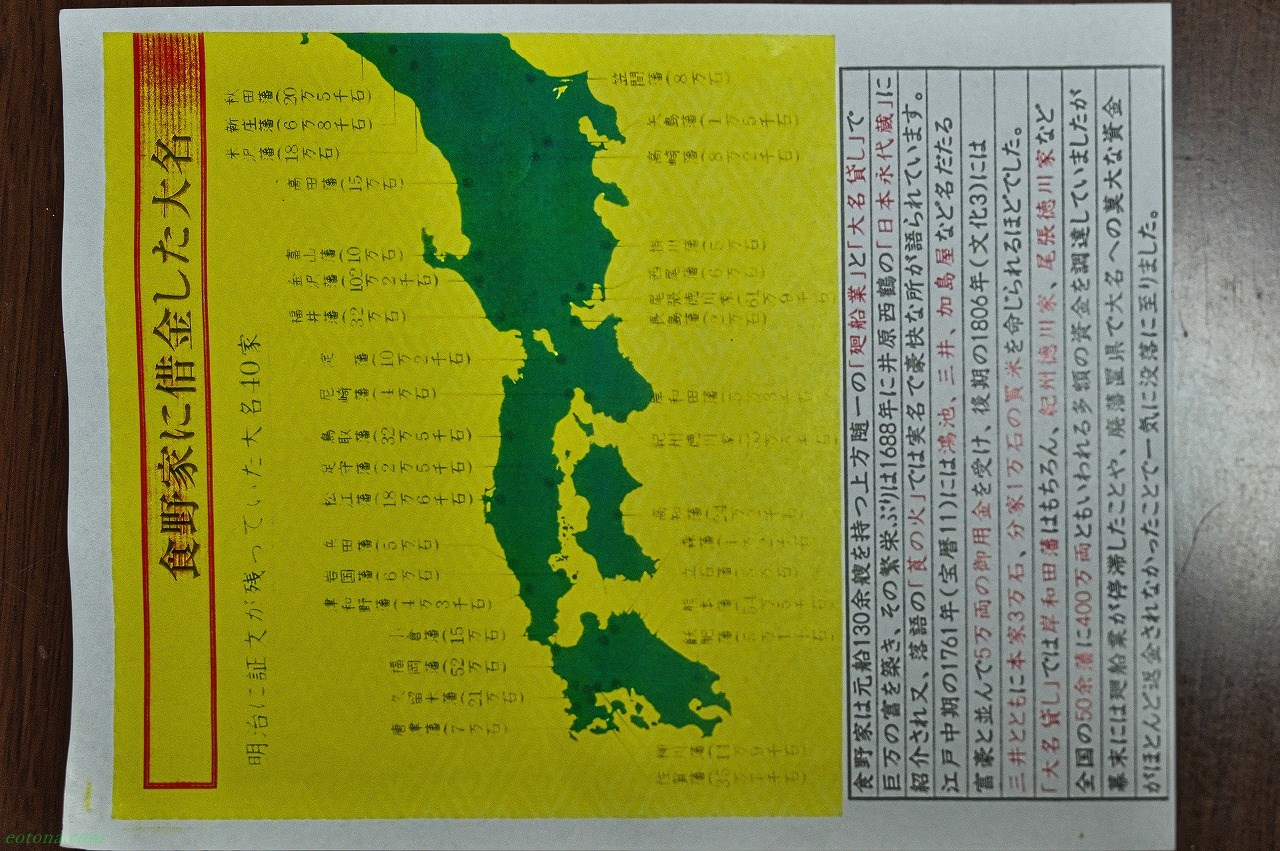 食野家に借金した大名
明治に証文が残っていた大名40家
秋田藩(20万5千石)
新庄藩(6万8千石)
米沢藩(18万石)
高田藩(15万石)
富山藩(10万石)
金沢藩(102万2千石)
福井藩(32万石)
淀藩(10万2千石)
尼崎藩(4万石)
鳥取藩(32万5千石)
足守藩(2万5千石)
松江藩(18万6千石)
岩国藩(6万石)
津和野藩(4万3千石)
小倉藩(15万石)
福岡藩(52万石)
久留米藩(21万石)
唐津藩(7万石)
笠間藩(8万石)
高崎藩(8万2千石)
掛川藩(5万石)
西尾藩(6万石)
尾張徳川家(61万9千石)
長島藩(2万石)
岸和田藩
紀州徳川家
高知藩
森藩
熊本藩
飫肥藩(5万1千石)
柳川藩(11万9千石)
佐賀藩
食野家は元船130余艘を持つ上方随一の「廻船業」と「大名貸し」で
巨万の富を築き、その繁栄ぶりは1688年に井原西鶴の「日本永代蔵」に
紹介され又、落語の「莨の火」では実名で豪快な所が語られています。
江戸中期の1761年(宝暦11)には鴻池、三井、加島屋など名だたる
富豪と並んで5万両の御用金を受け、後期の1806年(文化3)には
三井とともに本家3万石、分家1万石の買米を命じられるほどでした。
「大名貸し」では岸和田藩はもちろん、紀州徳川家、尾張徳川家など
全国の50余藩に400万両ともいわれる多額の資金を調達していましたが
幕末には廻船業が停滞したことや、廃藩置県で大名への莫大な資金
がほとんど返金されなかったことで一気に没落に至りました。